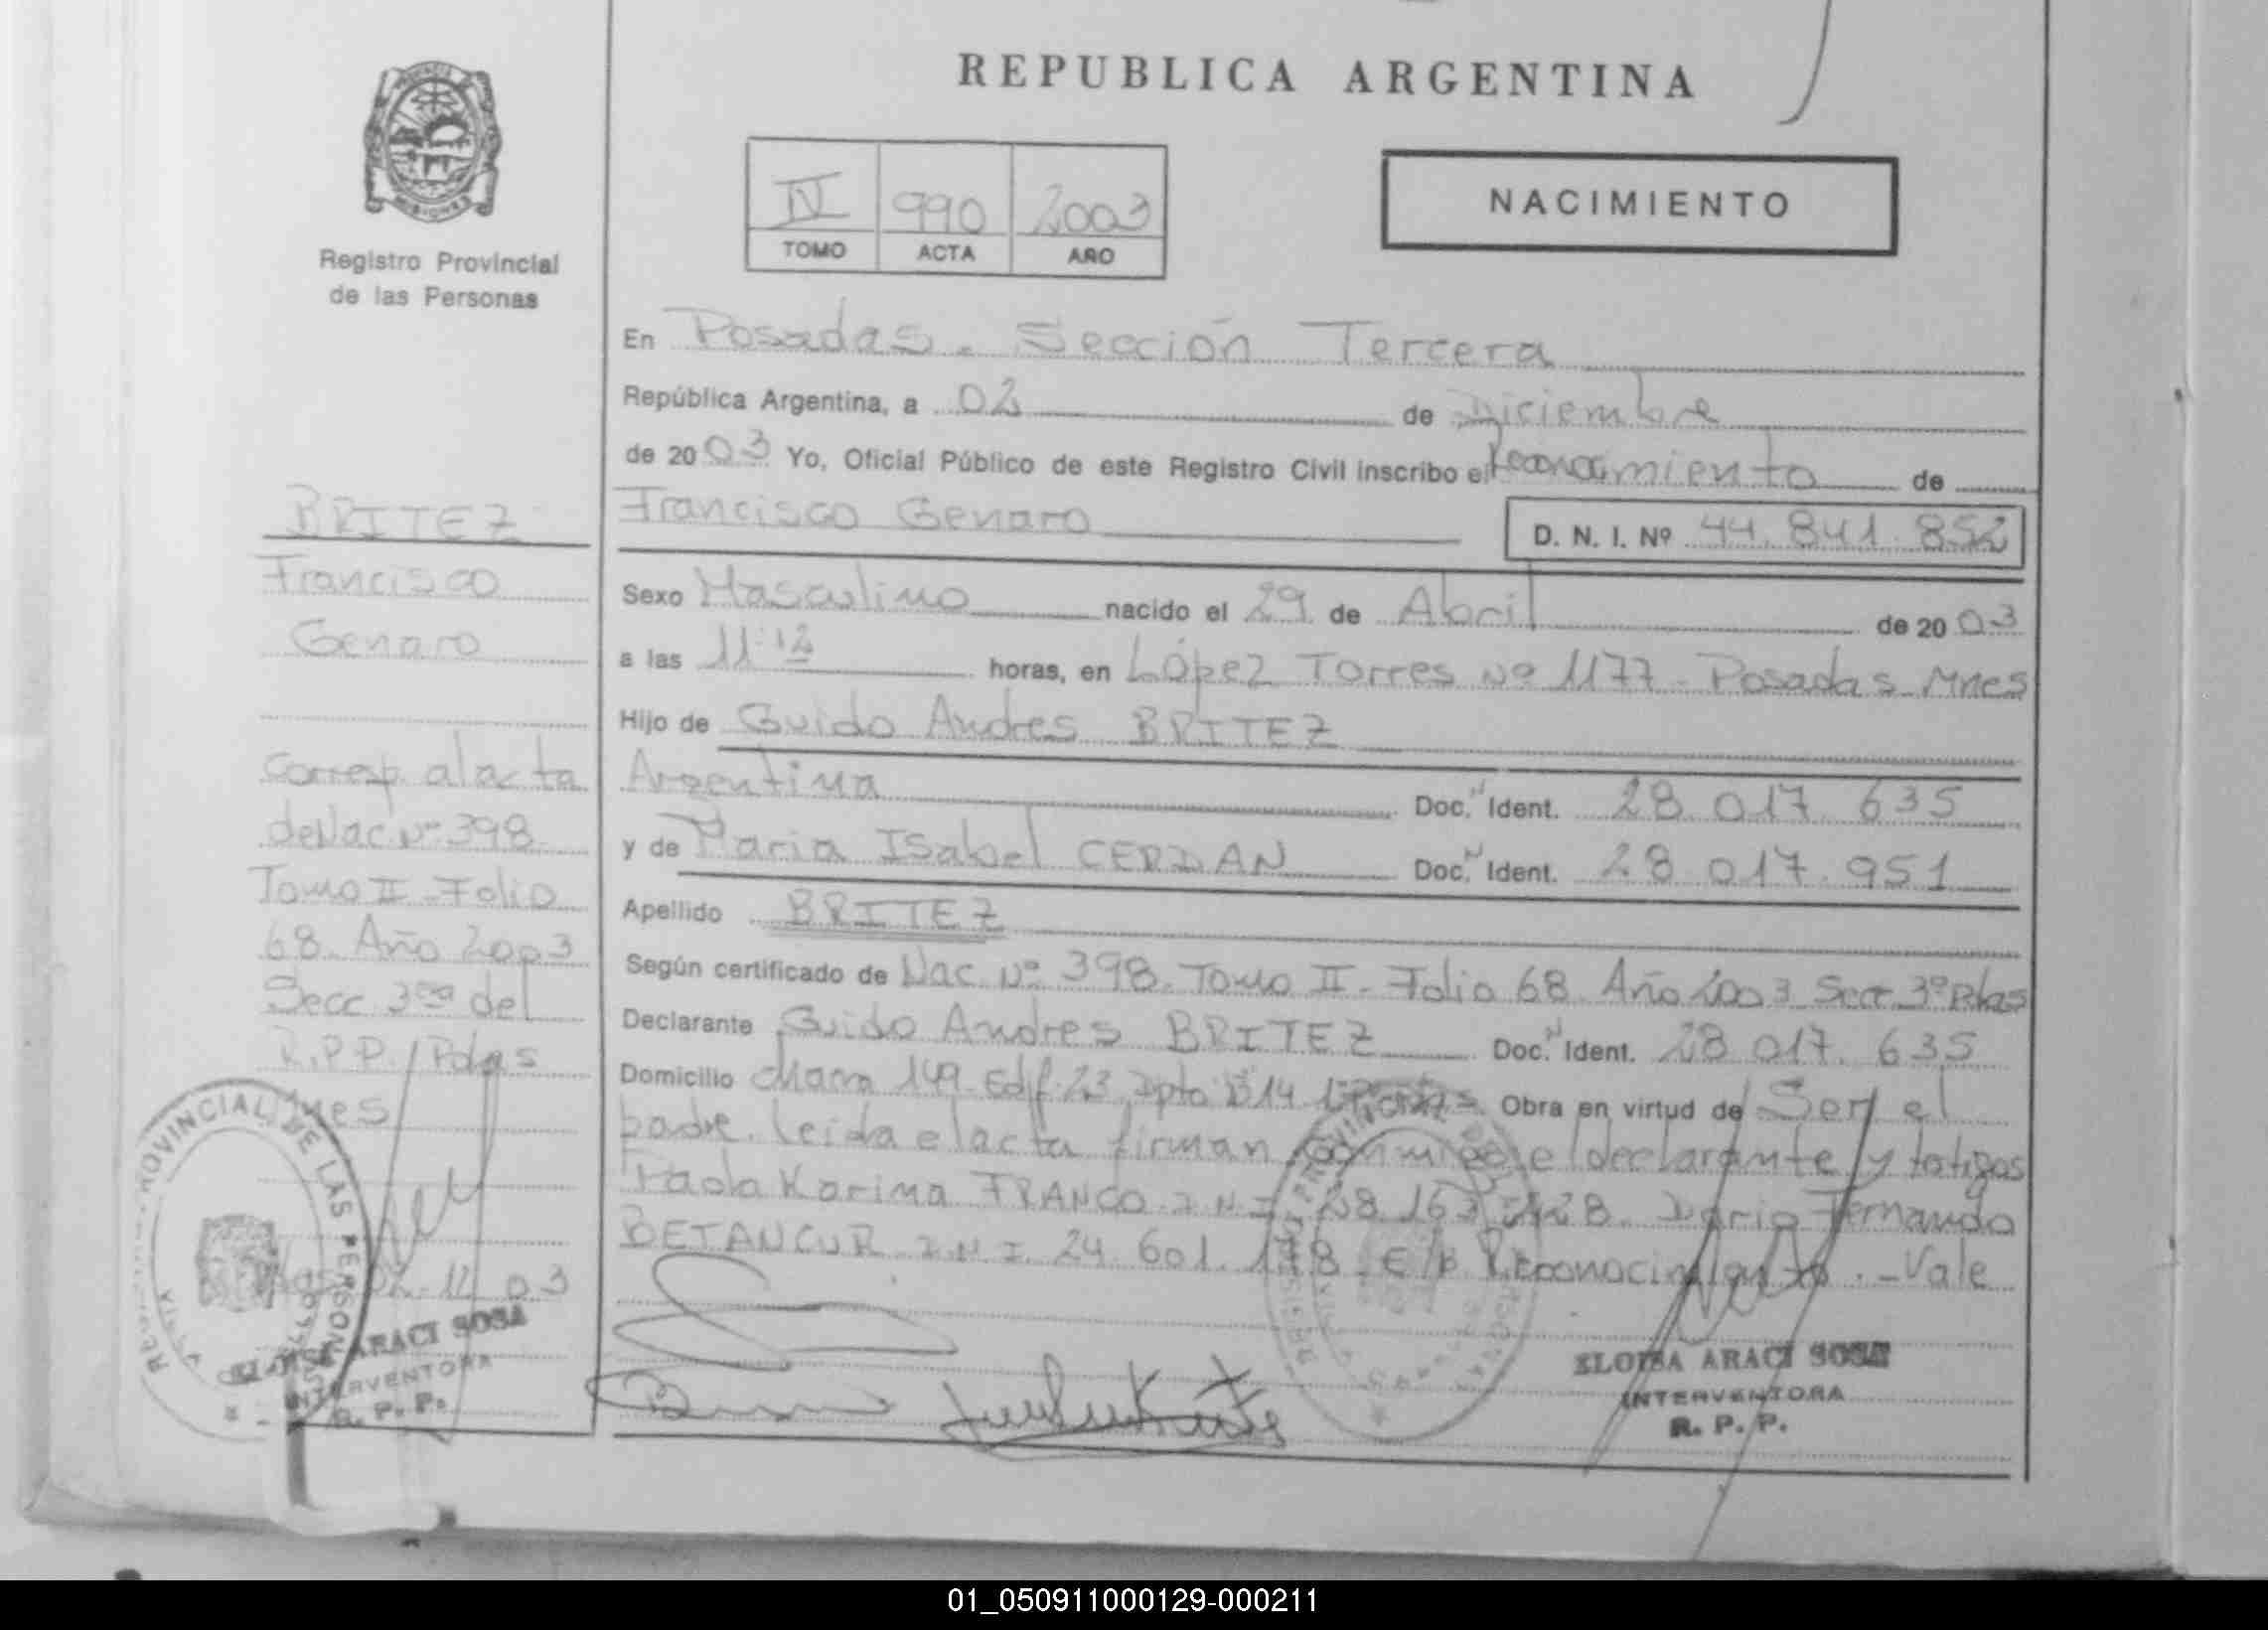 REPUBLICA ARGENTINA
PROVINCIA
MISIONES
Registro Provincial
de las Personas
IV 990 2003
TOMO ACTA AÑO
NACIMIENTO
En Posadas. Sección Tercera
República Argentina, a 02 de Diciembre
de 2003 Yo, Oficial Público de este Registro Civil inscribo el Reconocimiento de
Francisco Genaro
D. N. I. Nº 44.841.852
Sexo Masculino nacido el 29 de Abril de 2003
a las 11:12 horas, en López Torres Nº 1177 - Posadas Mnes
Hijo de Guido Andres BRITEZ
Argentina Doc. Ident. 28.017.635
y de Maria Isabel CERDAN Doc. Ident. 28.017.951
Apellido BRITEZ
Según certificado de Nac. Nº 398. Tomo II - Folio 68. Año 2003 Secc 3º Pdas
Declarante Guido Andres BRITEZ Doc. Ident. 28.017.635
Domicilio Chacra 149 Edif. 23 Dpto Obra en virtud de Ser el
padre. Leida el acta firman conmigo el declarante y testigos
Paola Karina FRANCO D.N.I. 28.163. Dario Fernando
BETANCUR D.N.I. 24.601. E/p Reconocimiento. - Vale
ELOISA ARACI SOSA
INTERVENTORA
R. P. P.
BRITEZ
Francisco
Genaro
Corresp. al acta
de Nac. Nº 398
Tomo II - Folio
68. Año 2003
Secc 3era del
R.P.P. / Pdas
Mnes
Pdas, 02-12-03
ELOISA ARACI SOSA
INTERVENTORA
R. P. P.
01_050911000129-000211